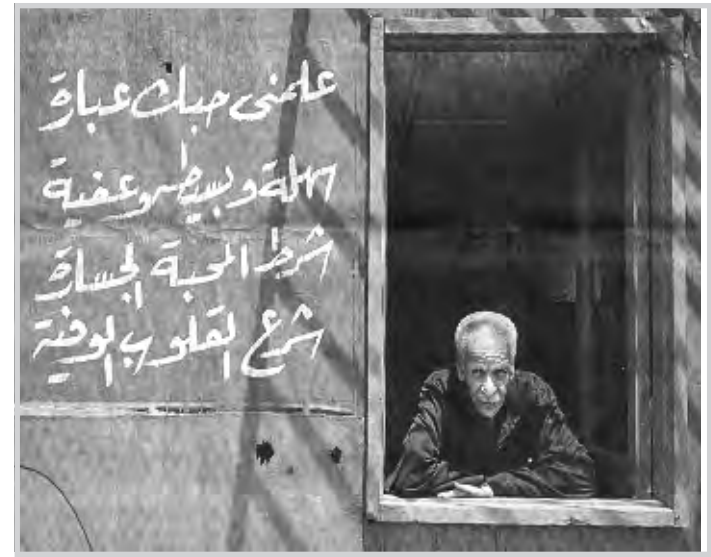 علمنى حبك عبارة
سهلة وبسيطة وعفية
شرط المحبة الجسارة
شرع القلوب الوفية